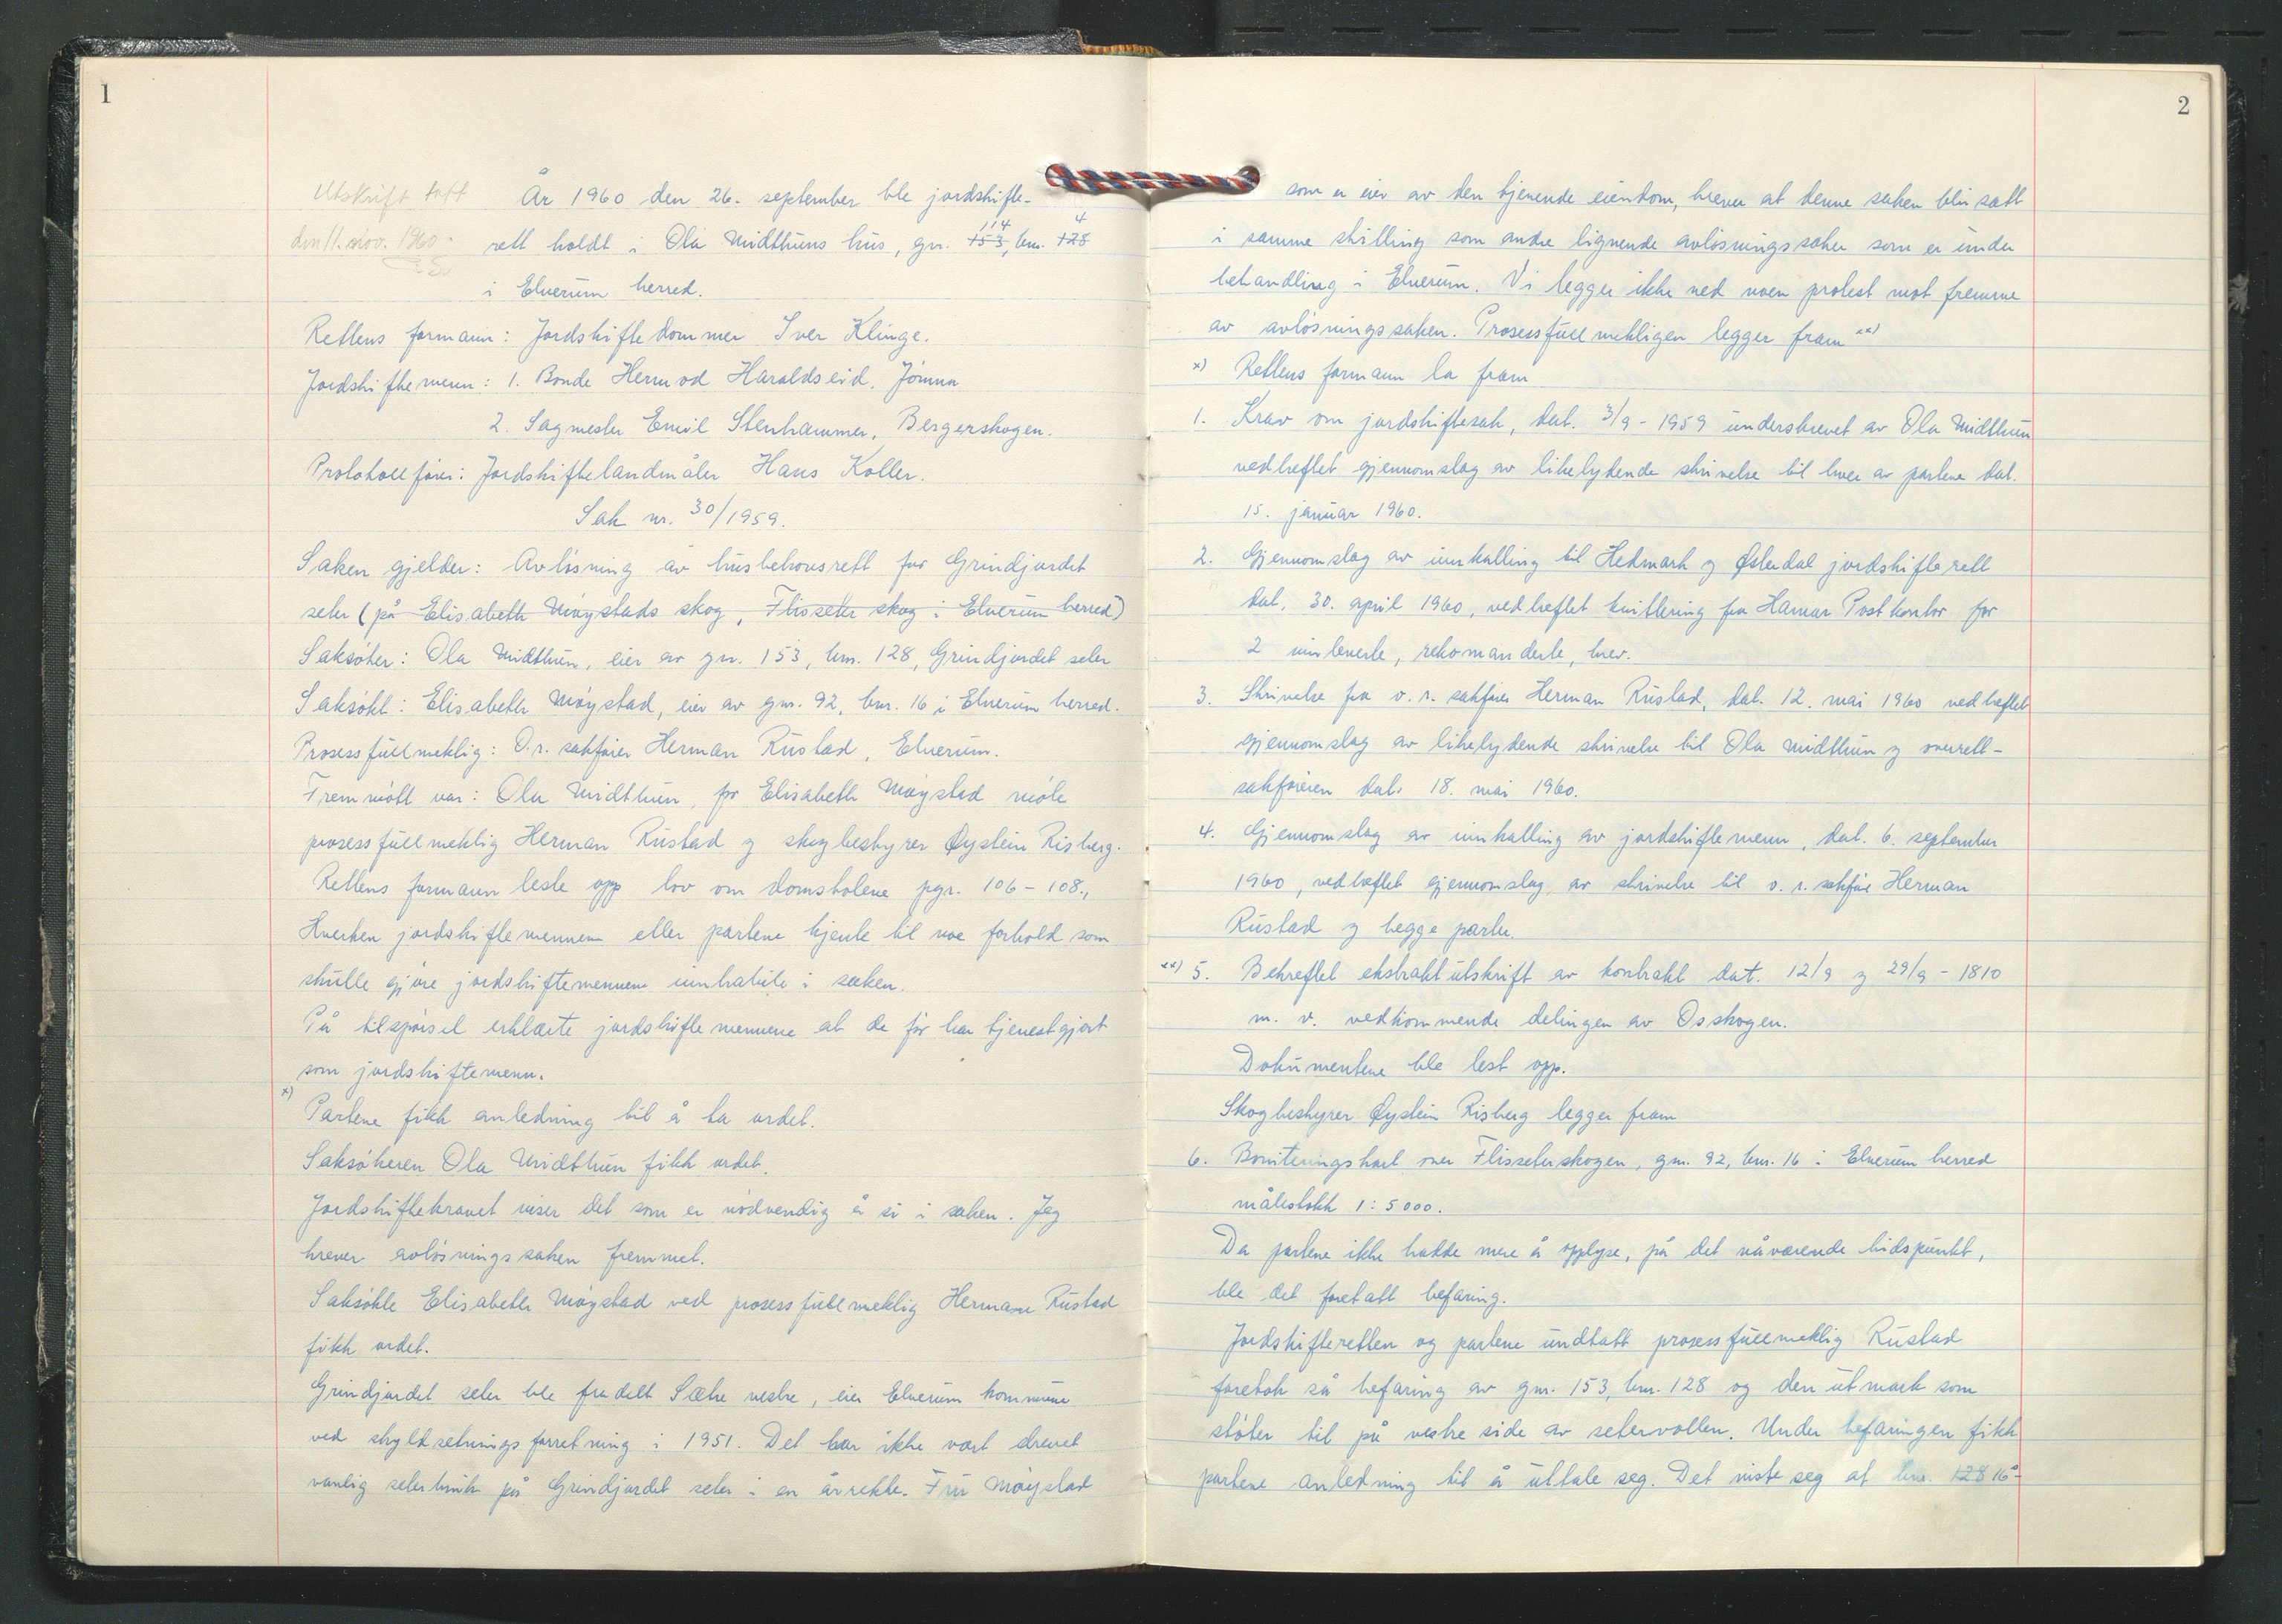 1
Utskrift tatt
den 11. nov. 1960.
År 1960 den 26. september ble jordskifte-
rett holdt i Ola Midthuns hus, gnr. 153, 114 bnr. 128 4
i Elverum herred.
Rettens formann: Jordskiftedommer Iver Klinge.
Jordskiftemenn: 1. Bonde Hermod Haraldseid, Jömna
2. Sagmester Emil Stenhammer, Bergerskogen.
Protokollförer: Jordskiftelandmåler Hans Koller.
Sak nr. 30/1959.
Saken gjelder: Avlösning av husbehovsrett for Grindjordet
seter (på Elisabeth Möystads skog, Flisseter skog i Elverum herred)
Saksöker: Ola Midthun, eier av gnr. 153, bnr. 128, Grindjordet seter
Saksökt: Elisabeth Möystad, eier av gnr. 92, bnr. 16 i Elverum herred.
Prosessfullmektig: O.r. sakförer Herman Rustad, Elverum.
Fremmött var: Ola Midthun, for Elisabeth Möystad mötte
prosessfullmektig Herman Rustad og skogbestyrer Øystein Risberg.
Rettens formann leste opp lov om domstolene pgr. 106 - 108.,
Hverken jordskiftemennene eller partene kjente til noe forhold som
skulle gjöre jordskiftemennene innhabile i saken.
På tilspörsel erklærte jordskiftemennene at de för har tjenestgjort
som jordskiftemenn.
x)
Partene fikk anledning til å ta ordet.
Saksökeren Ola Midthun fikk ordet.
Jordskiftekravet viser det som er nödvendig å si i saken. Jeg
krever avlösningssaken fremmet.
Saksökte Elisabeth Möystad ved prosessfullmektig Herman Rustad
fikk ordet.
Grindjordet seter ble fradelt Sæhre vestre, eier Elverum kommune
ved skyldsetningsforretning i 1951. Det har ikke vært drevet
vanlig seterbruk på Grindjordet seter i en årrekke. Fru Möystad
2
som er eier av den tjenende eiendom, krever at denne saken blir satt
i samme stilling som andre lignende avlösningssaker som er under
behandling i Elverum. Vi legger ikke ned noen protest mot fremme
av avlösningssaken. Prosessfullmektigen legger fram xx)
x) Rettens formann la fram
1. Krav om jordskiftesak, dat. 3/9 - 1959 underskrevet av Ola Midthun
vedheftet gjennomslag av likelydende skrivelse til hver av partene dat.
15. januar 1960.
2. Gjennomslag av innkalling til Hedmark og Østerdal jordskifterett
dat. 30. april 1960, vedheftet kvittering fra Hamar Postkontor for
2 innleverte, rekomanderte, brev.
3. Skrivelse fra o. r. sakförer Herman Rustad, dat. 12. mai 1960 vedheftet
gjennomslag av likelydende skrivelse til Ola Midthun og overrett-
sakföreren dat. 18. mai 1960.
4. Gjennomslag av innkalling av jordskiftemenn, dat. 6. september
1960, vedheftet gjennomslag av skrivelse til o. r. sakförer Herman
Rustad og begge parter.
xx) 5. Bekreftet ekstraktutskrift av kontrakt dat. 12/9 og 29/9 - 1810
m. v. vedkommende delingen av Osskogen.
Dokumentene ble lest opp.
Skogbestyrer Øystein Risberg legger fram
6. Boniteringskart over Flisseterskogen, gnr. 92, bnr. 16 i Elverum herred
målestokk 1:5000.
Da partene ikke hadde mere å opplyse, på det nåværende tidspunkt,
ble det foretatt befaring.
Jordskifteretten og partene undtatt prosessfullmektig Rustad
foretok så befaring av gnr. 153, bnr. 128 og den utmark som
stöter til på vestre side av setervollen. Under befaringen fikk
partene anledning til å uttale seg. Det viste seg at bnr. 128